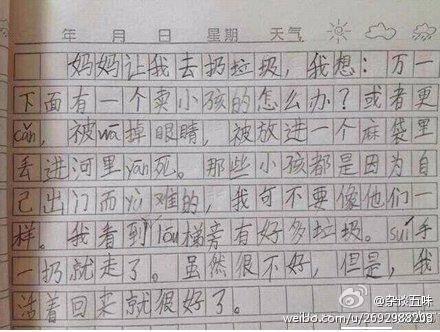 年 月 日 星期 天气
妈妈让我去扔垃圾，我想：万一
下面有一个卖小孩的怎么办？或者更
cǎn，被wā掉眼睛，被放进一个麻袋里
丢进河里yān死。那些小孩都是因为自
己出门而yù难的，我可不要像他们一
样。我看到lóu梯旁有好多垃圾。suí手
一扔就走了。虽然很不好，但是，我
活着回来就很好了。
@杂谈五味
weibo.com/u/2692988203